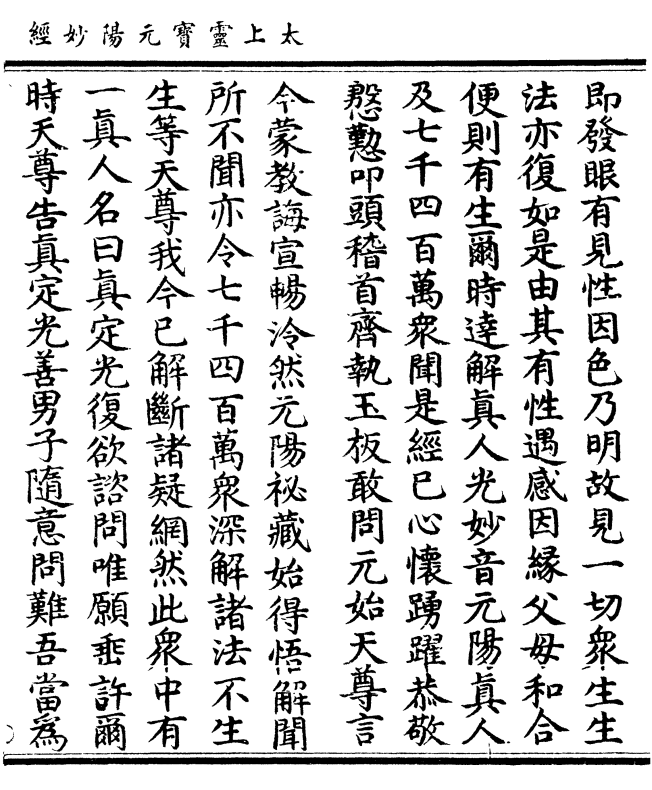 太上靈寶元陽妙經
即發眼有見性因色乃明故見一切衆生生
法亦復如是由其有性遇感因緣父母和合
便則有生爾時達解眞人光妙音元陽眞人
及七千四百萬衆聞是經已心懷踴躍恭敬
慇懃叩頭稽首齊執玉板敢問元始天尊言
今蒙教誨宣暢泠然元陽祕藏始得悟解聞
所不聞亦令七千四百萬衆深解諸法不生
生等天尊我今已解斷諸疑網然此衆中有
一眞人名曰眞定光復欲諮問唯願垂許爾
時天尊告眞定光善男子隨意問難吾當爲